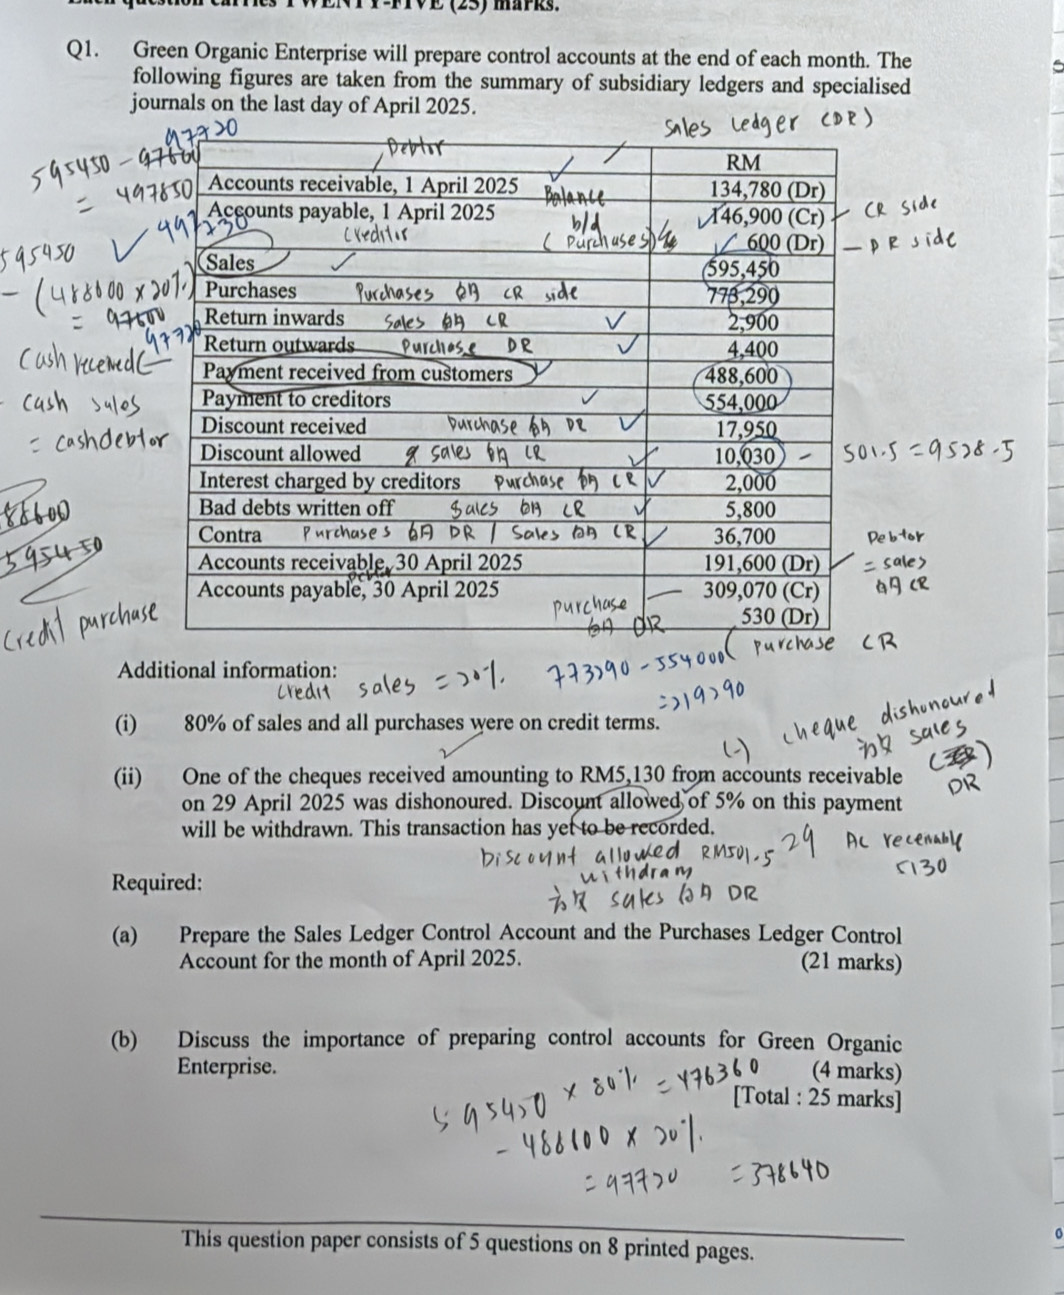 Each question carries TWENTY-FIVE (25) marks.
Q1. Green Organic Enterprise will prepare control accounts at the end of each month. The
following figures are taken from the summary of subsidiary ledgers and specialised
journals on the last day of April 2025.
Sales Ledger (DR)
97720
595450 - 97600
= 497850
Debtor
RM
Accounts receivable, 1 April 2025 134,780 (Dr)
Balance b/d
Accounts payable, 1 April 2025 146,900 (Cr) CR side
creditor (Purchases) 600 (Dr) - DR side
497730
595450
- (488600 x 20%)
= 97600
97720
Sales 595,450
Purchases Purchases CR side 773,290
Return inwards Sales CR 2,900
Return outwards Purchase DR 4,400
Cash received
Payment received from customers 488,600
Payment to creditors 554,000
cash sales
= cash debtor
Discount received Purchase DR 17,950
Discount allowed sales CR 10,030 - 501.5 = 9528.5
Interest charged by creditors Purchase CR 2,000
Bad debts written off Sales CR 5,800
Contra Purchases DR / Sales CR 36,700
88600
595450
Accounts receivable, 30 April 2025 191,600 (Dr)
Debtor
= sales
CR
Accounts payable, 30 April 2025 309,070 (Cr)
purchase DR
530 (Dr)
purchase CR
Credit purchase
Additional information:
credit sales = 20%
773290 - 554000
= 219290
(i) 80% of sales and all purchases were on credit terms.
(-) cheque dishonoured
sales
DR
(ii) One of the cheques received amounting to RM5,130 from accounts receivable
on 29 April 2025 was dishonoured. Discount allowed of 5% on this payment
will be withdrawn. This transaction has yet to be recorded.
Discount allowed RM501.5
withdram
sales DR
29 AC receivable
5130
Required:
(a) Prepare the Sales Ledger Control Account and the Purchases Ledger Control
Account for the month of April 2025. (21 marks)
(b) Discuss the importance of preparing control accounts for Green Organic
Enterprise. (4 marks)
[Total : 25 marks]
595450 x 80% = 476360
- 488600 x 20%
= 97720 = 378640
This question paper consists of 5 questions on 8 printed pages.